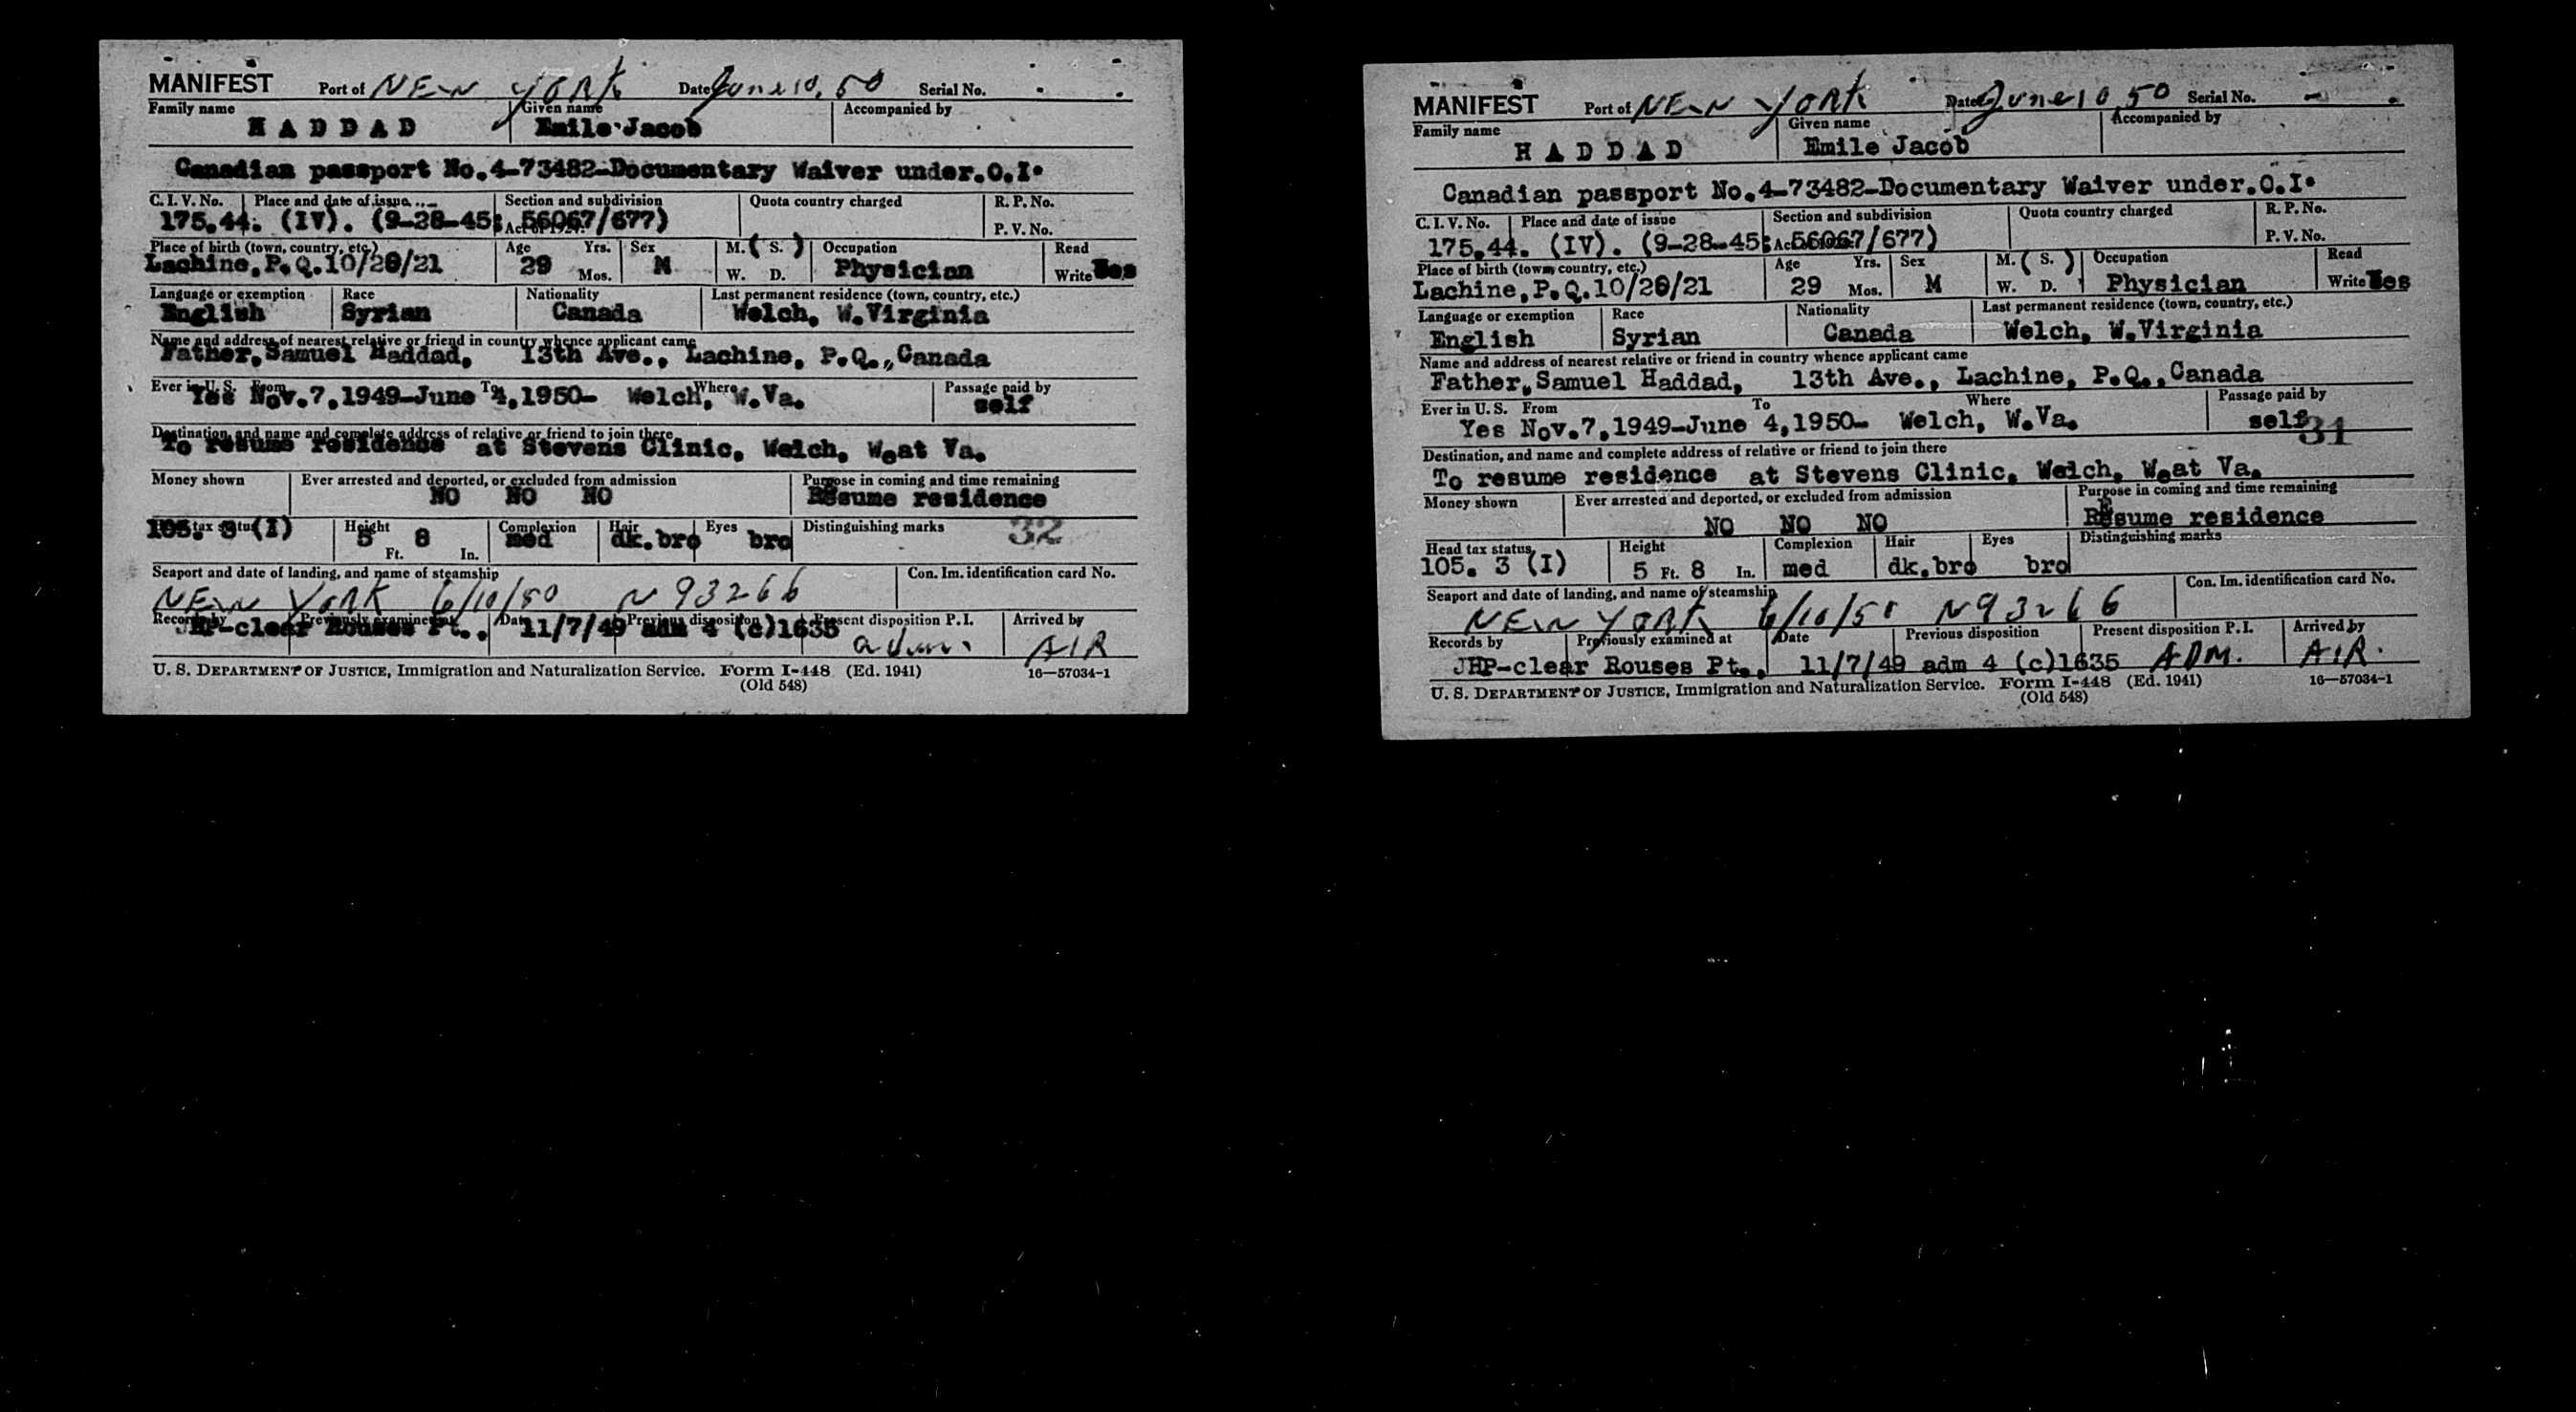 MANIFEST Port of NEW YORK Date June 10, 50 Serial No.
Family name Given name Accompanied by
HADDAD Emile Jacob
Canadian passport No.4-73482-Documentary Waiver under.O.I.
C. I. V. No. Place and date of issue Section and subdivision Quota country charged R. P. No.
175.44. (IV). (9-28-45; 56067/677)
P. V. No.
Place of birth (town, country, etc.) Age Yrs. Sex M. (S.) Occupation Read
Lachine, P.Q.10/28/21 29 Mos. M W. D. Physician Write Yes
Language or exemption Race Nationality Last permanent residence (town, country, etc.)
English Syrian Canada Welch, W.Virginia
Name and address of nearest relative or friend in country whence applicant came
Father, Samuel Haddad, 13th Ave., Lachine, P.Q.,,Canada
Ever in U. S. From To Where Passage paid by
Yes Nov.7,1949-June 4,1950- Welch, W.Va. self
Destination, and name and complete address of relative or friend to join there
To resume residence at Stevens Clinic, Welch, Weat Va.
Money shown Ever arrested and deported, or excluded from admission Purpose in coming and time remaining
NO NO NO Resume residence
Head tax status Height Complexion Hair Eyes Distinguishing marks
105. 3 (I) 5 Ft. 8 In. med dk.bro bro 32
Seaport and date of landing, and name of steamship Con. Im. identification card No.
NEW YORK 6/10/50 N93266
Records by Previously examined at Date Previous disposition Present disposition P. I. Arrived by
JHP-clear Rouses Pt., 11/7/49 adm 4 (c)1635 adm. AIR
U. S. DEPARTMENT OF JUSTICE, Immigration and Naturalization Service. Form I-448 (Ed. 1941) 16—57034-1
(Old 548)
MANIFEST Port of NEW YORK Date June 10 50 Serial No. -
Family name Given name Accompanied by
HADDAD Emile Jacob
Canadian passport No.4-73482-Documentary Waiver under.O.I.
C. I. V. No. Place and date of issue Section and subdivision Quota country charged R. P. No.
175.44. (IV). (9-28-45; 56067/677)
P. V. No.
Place of birth (town, country, etc.) Age Yrs. Sex M. (S.) Occupation Read
Lachine, P.Q.10/28/21 29 Mos. M W. D. Physician Write Yes
Language or exemption Race Nationality Last permanent residence (town, country, etc.)
English Syrian Canada Welch, W.Virginia
Name and address of nearest relative or friend in country whence applicant came
Father, Samuel Haddad, 13th Ave., Lachine, P.Q.,,Canada
Ever in U. S. From To Where Passage paid by
Yes Nov.7,1949-June 4,1950- Welch, W.Va. self 31
Destination, and name and complete address of relative or friend to join there
To resume residence at Stevens Clinic, Welch, Weat Va.
Money shown Ever arrested and deported, or excluded from admission Purpose in coming and time remaining
NO NO NO Resume residence
Head tax status Height Complexion Hair Eyes Distinguishing marks
105. 3 (I) 5 Ft. 8 In. med dk.bro bro
Seaport and date of landing, and name of steamship Con. Im. identification card No.
NEW YORK 6/10/50 N93266
Records by Previously examined at Date Previous disposition Present disposition P. I. Arrived by
JHP-clear Rouses Pt., 11/7/49 adm 4 (c)1635 ADM. AIR.
U. S. DEPARTMENT OF JUSTICE, Immigration and Naturalization Service. Form I-448 (Ed. 1941) 16—57034-1
(Old 548)